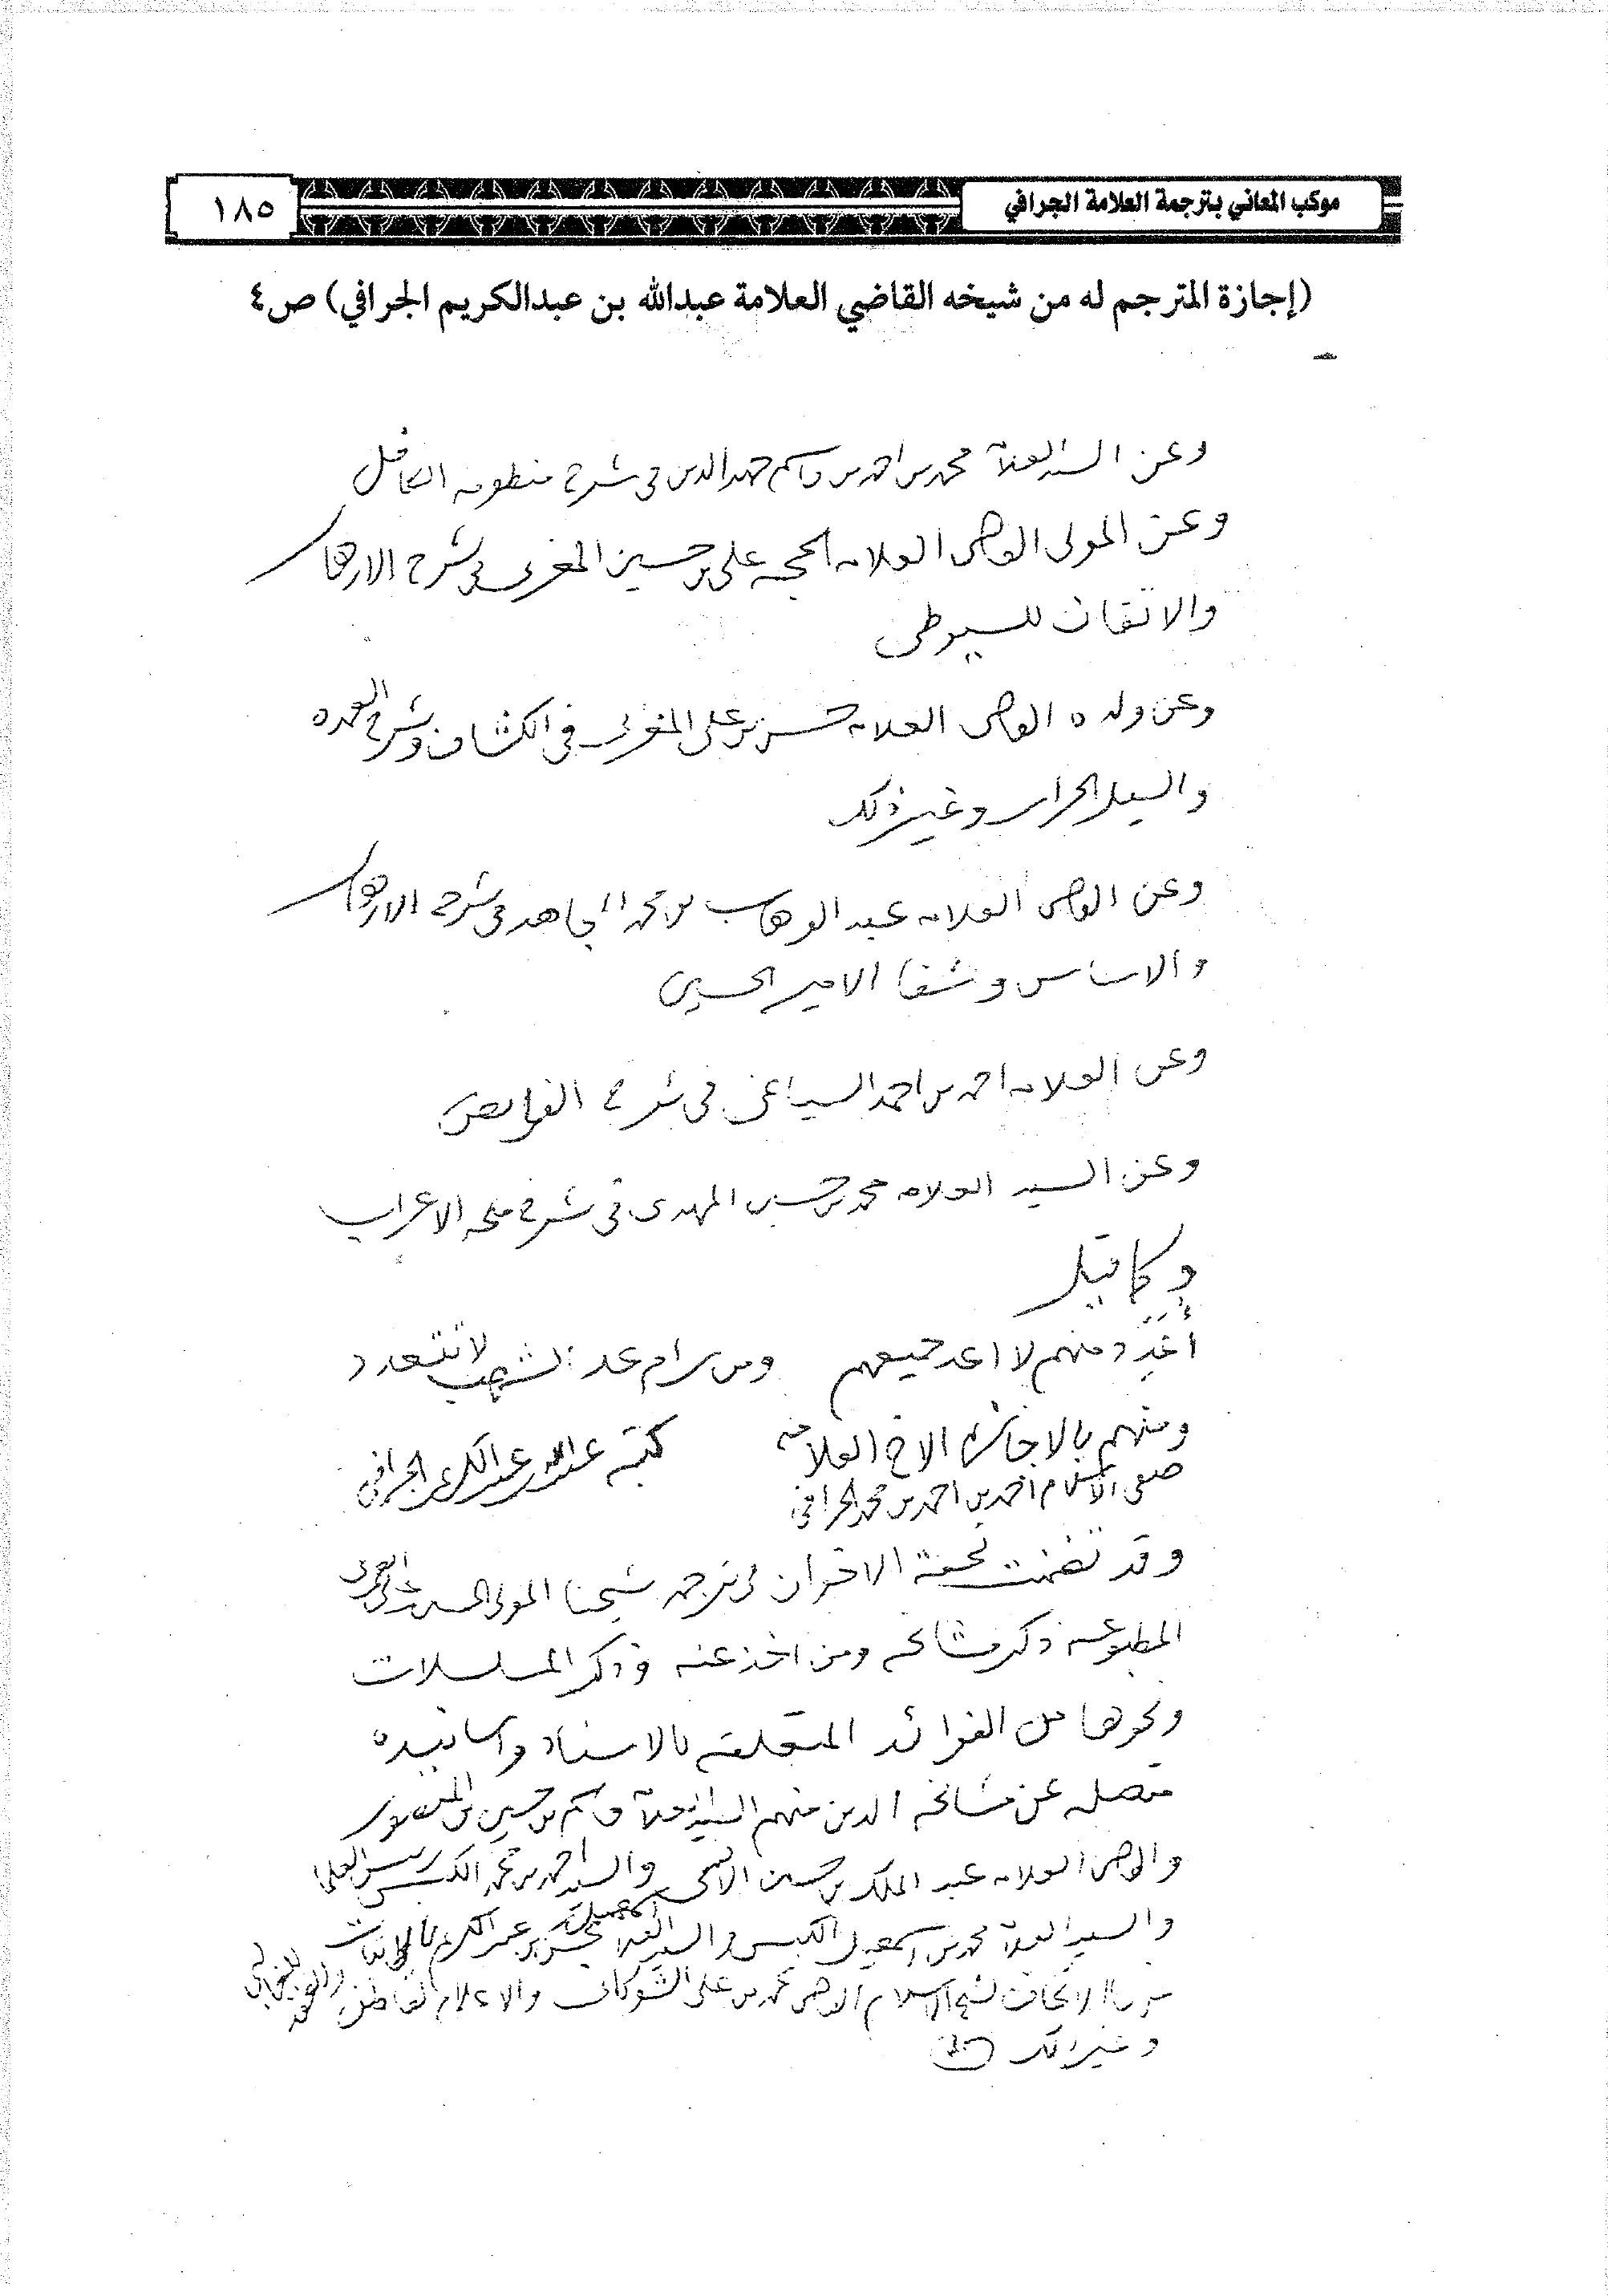 موكب المعاني بترجمة العلامة الجرافي
١٨٥
(إجازة المترجم له من شيخه القاضي العلامة عبدالله بن عبدالكريم الجرافي) ص٤
وعن السيد العلامة محمد بن احمد بن قاسم حميد الدين في شرح منظومه الكافل
وعن المولى القاضي العلامه الحجه علي بن حسين المغربي في شرح الازهار
والاتقان للسيوطي
وعن ولده القاضي العلامه حسين بن علي المغربي في الكشاف وشرح العمده
والسيل الجرار وغير ذلك
وعن القاضي العلامه عبد الوهاب بن محمد المجاهد في شرح الازهار
والاساس وشفا الامير الحسين
وعن العلامه احمد بن احمد السياغي في شرح الفرايض
وعن السيد العلامه محمد بن حسين المهدي في شرح ملحه الاعراب
وكما قيل
أعدد منهم لا اعد جميعهم ومن رام عد الشهب لا تتعدد
ومنهم بالاجازة الاخ العلامه
صفي الاسلام احمد بن احمد بن محمد الجرافي
كتبه عبدالله بن عبد الكريم الجرافي
وقد تضمنت تحفة الاخوان في ترجمه شيخنا المولى الحسين بن علي العمري
المطبوعه ذكر مشائخه ومن اخذ عنه وذكر المسلسلات
ونحوها من الفوائد المتعلقه بالاسناد واسانيده
متصله عن مشائخه الذين منهم السيد العلامة قاسم بن حسين بن المنصور
والقاضي العلامه عبد الملك بن حسين الانسي والسيد احمد بن محمد الكبسي رئيس العلما
والسيد العلامة محمد بن اسمعيل الكبسي والسيد العلامه اسمعيل بن محسن بن عبد الكريم
الاتحاف لشيخ الاسلام القاضي محمد بن علي الشوكاني والاعلام
وغير ذلك